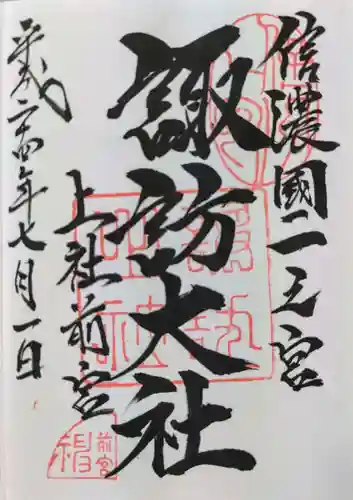 信濃國一之宮
諏訪大社
上社前宮
平成二十四年七月一日
前宮